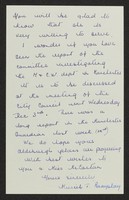 You will be glad to
know that she is
very willing to serve.
I wonder if you have
seen the report of the
committee investigating
the dept. in Manchester
It is to be discussed
at the meeting of the
City Council next Wednesday
Dec. 5th. There was a
long report in the Manchester
Guardian last week
We do hope your
Aldeburgh plans are progressing
With best wishes to
you & Miss
Yours sincerely
Muriel